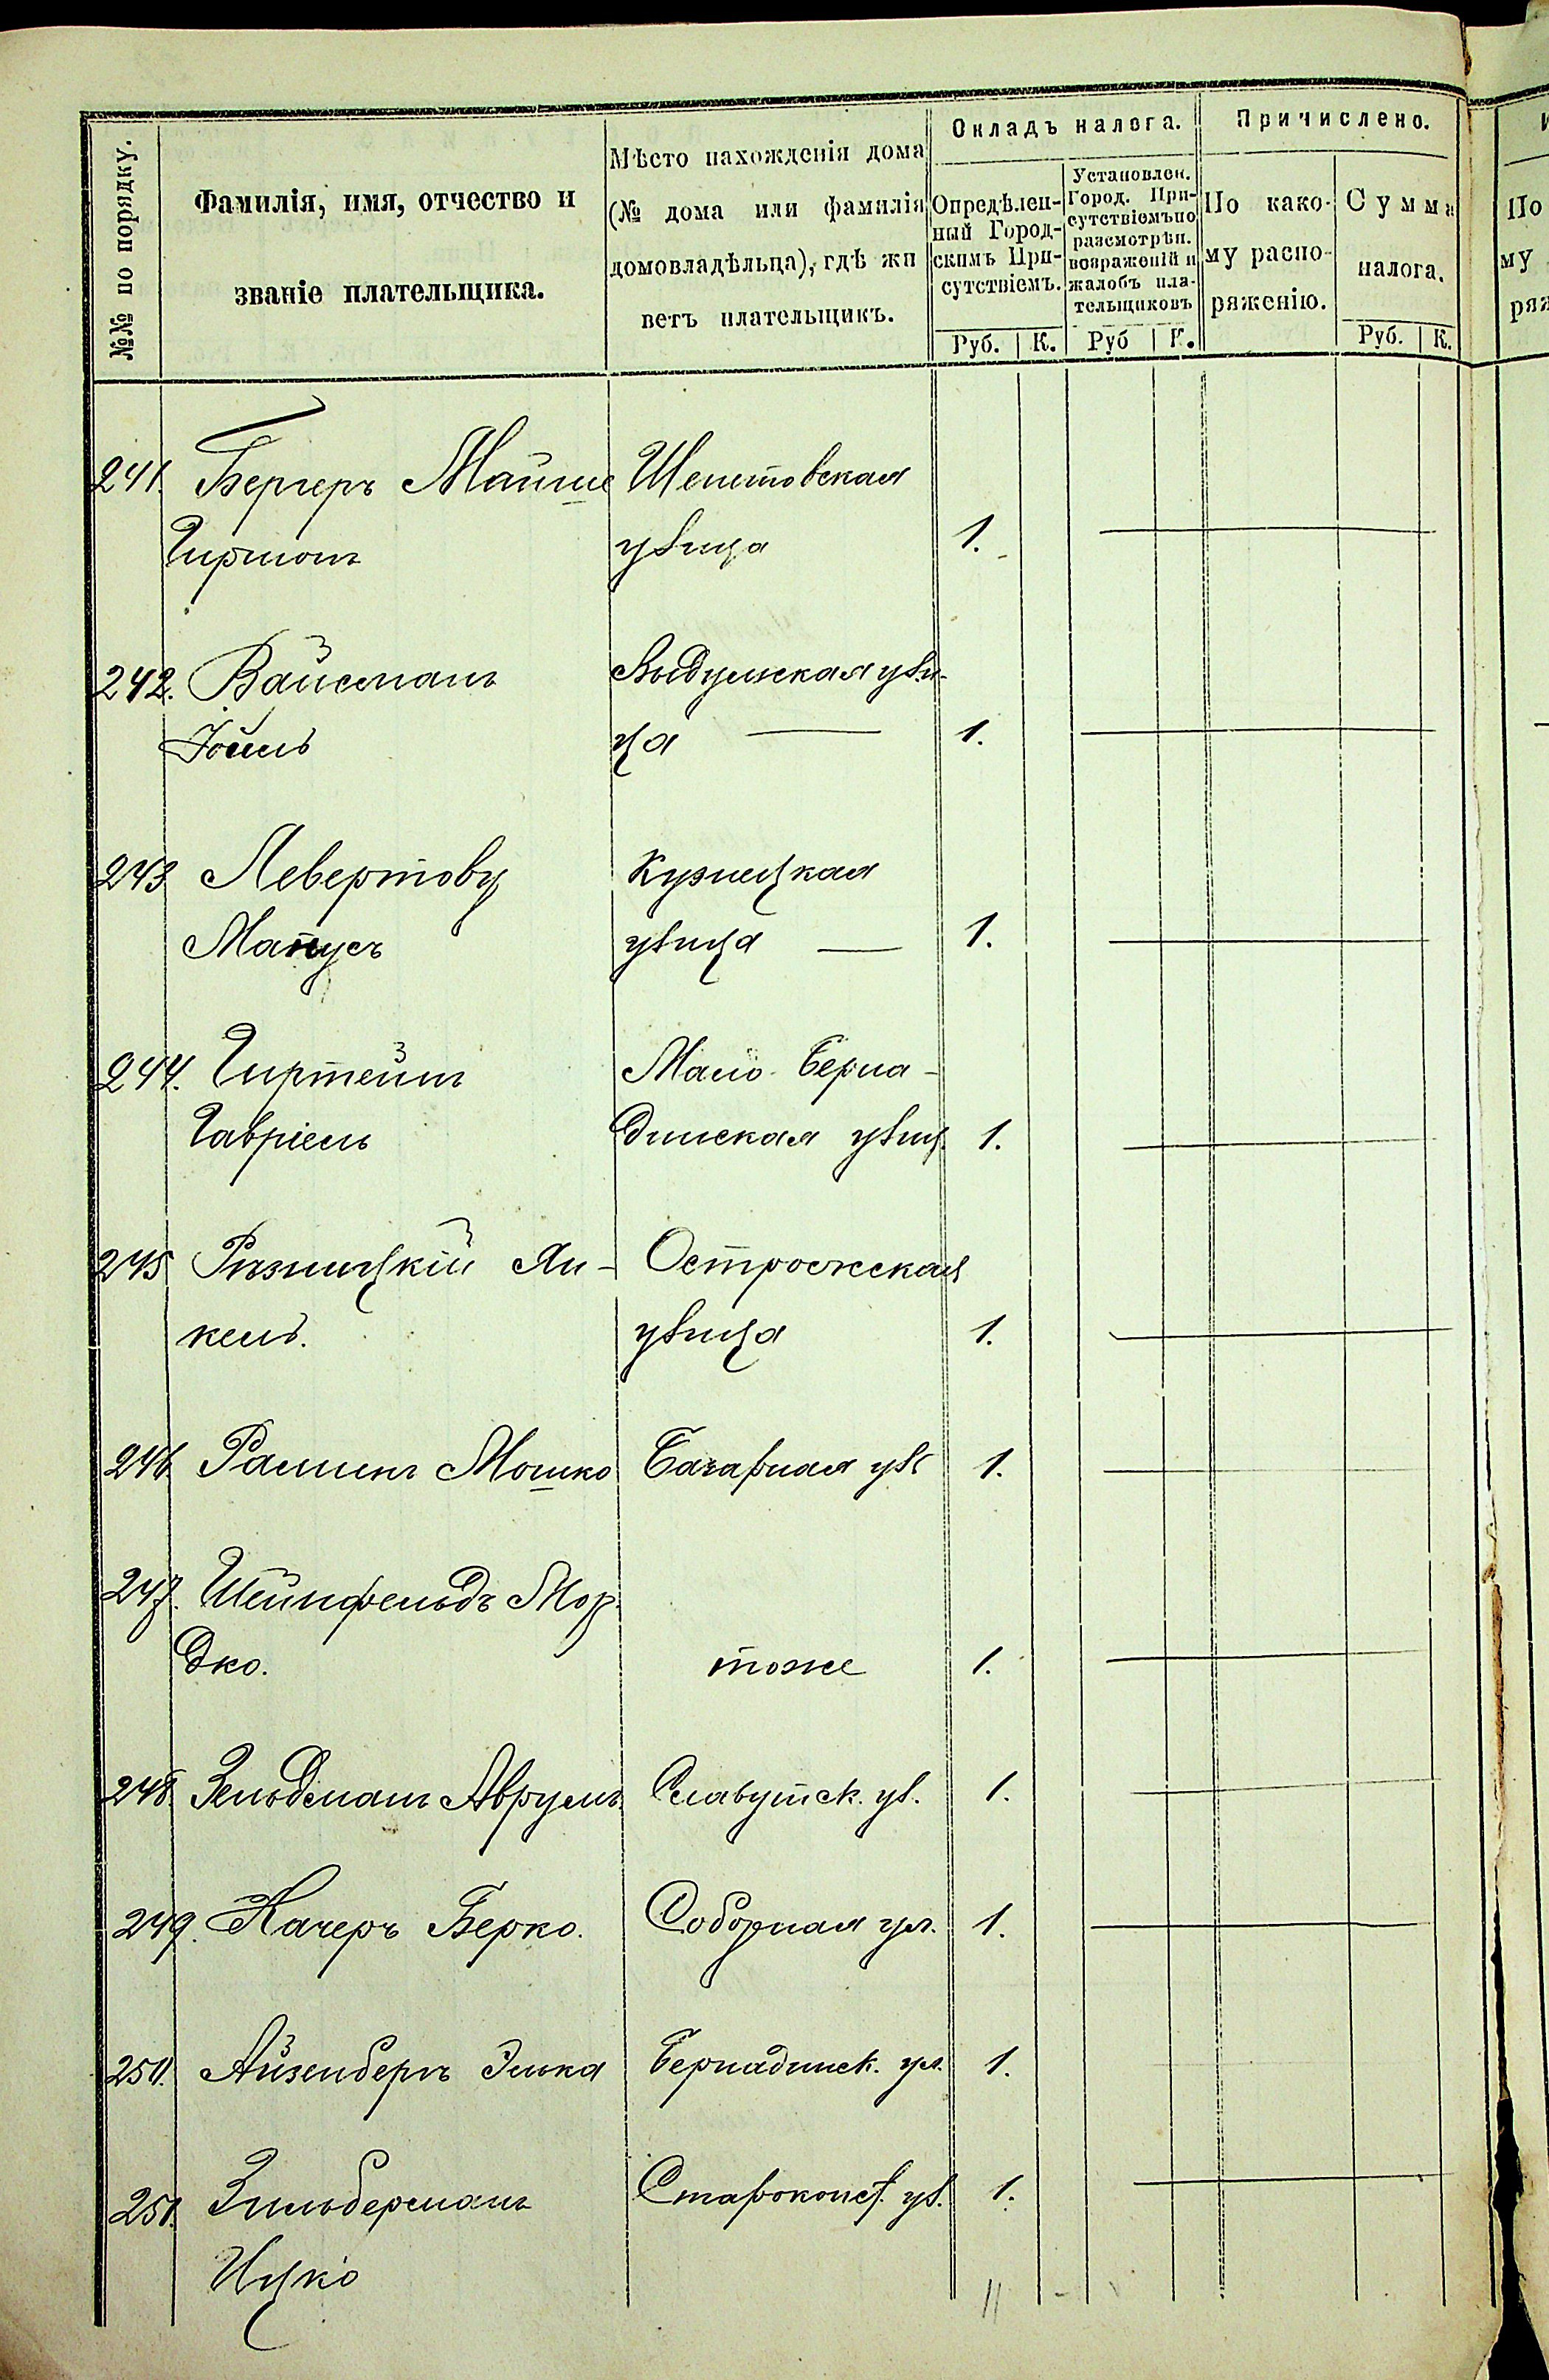 №№ по порядку.
Фамилія, имя, отчество и
званіе плательщика.
Мѣсто нахожденія дома
(№ дома или фамилія
домовладѣльца), гдѣ жи
ветъ плательщикъ.
Окладъ налога.
Опредѣлен-
ный Город-
скимъ При-
сутствіемъ.
Руб. К.
Установлен.
Город. При-
сутствіемъ по
разсмотрѣн.
возраженій и
жалобъ пла-
тельщиковъ
Руб К.
Причислено.
По како-
му распо-
ряженію.
Сумма
налога.
Руб. К.
По
му
ряж
241. Бергеръ Майше Шепетовская
Гиршовъ улица 1.
242. Вайсманъ ули-
Іойль ца — 1.
243 Левертовъ Кузнецкая
Манусъ улица — 1.
244. Гиртейнъ Мало-Берна-
Гавріель динская улиц. 1.
245 Рязницкій Ян- Острожская
кель. улица 1.
246 Мошко Базарная ул 1.
247. Шейнфельдъ Мор-
дко. тоже 1.
248. Зельдманъ Аврумъ Славутск. ул. 1.
249. Качеръ Берко. Соборная ул. 1.
250. Айзенбергъ Элька Бернадинск. ул. 1.
251. Зильберманъ Староконст. ул. 1.
Ицко
11